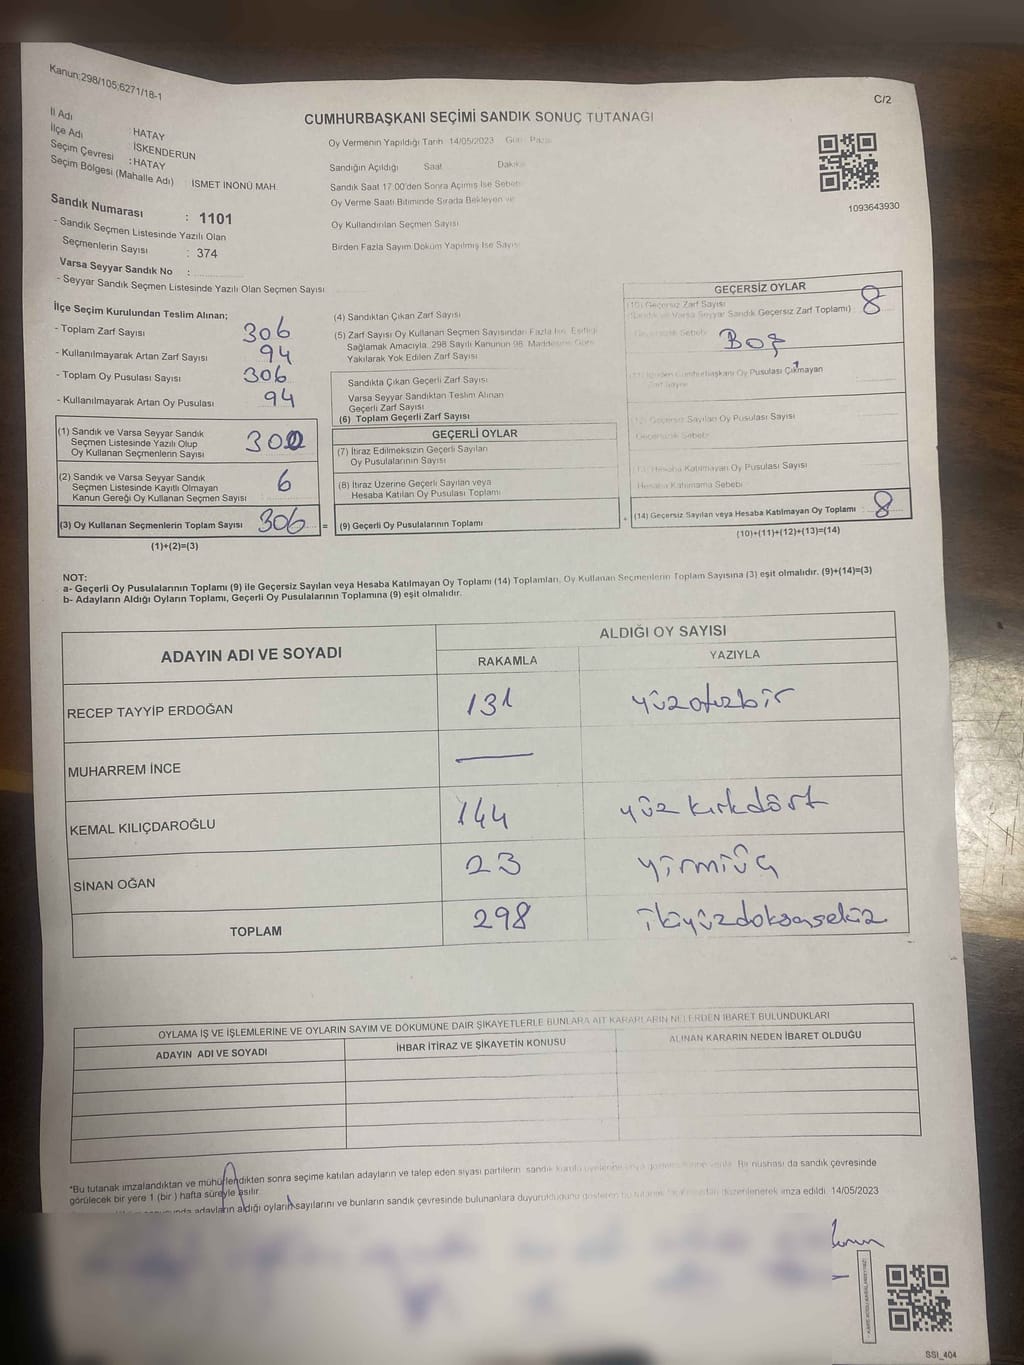 Kanun;298/105;6271/18-1
C/2
CUMHURBAŞKANI SEÇİMİ SANDIK SONUÇ TUTANAĞI
İl Adı : HATAY
İlçe Adı : İSKENDERUN
Seçim Çevresi : HATAY
Seçim Bölgesi (Mahalle Adı) İSMET İNÖNÜ MAH.
Sandık Numarası : 1101
- Sandık Seçmen Listesinde Yazılı Olan
Seçmenlerin Sayısı : 374
Varsa Seyyar Sandık No :
- Seyyar Sandık Seçmen Listesinde Yazılı Olan Seçmen Sayısı
Oy Vermenin Yapıldığı Tarih 14/05/2023 Gün
Sandığın Açıldığı Saat
Sandık Saat 17.00'den Sonra Açılmış İse Sebebi
Oy Verme Saati Bitiminde Sırada Bekleyen ve
Oy Kullandırılan Seçmen Sayısı
Birden Fazla Sayım Döküm Yapılmış İse Sayısı
1093643930
İlçe Seçim Kurulundan Teslim Alınan;
- Toplam Zarf Sayısı 306
- Kullanılmayarak Artan Zarf Sayısı 94
- Toplam Oy Pusulası Sayısı 306
- Kullanılmayarak Artan Oy Pusulası 94
(1) Sandık ve Varsa Seyyar Sandık
Seçmen Listesinde Yazılı Olup
Oy Kullanan Seçmenlerin Sayısı 300
(2) Sandık ve Varsa Seyyar Sandık
Seçmen Listesinde Kayıtlı Olmayan
Kanun Gereği Oy Kullanan Seçmen Sayısı 6
(3) Oy Kullanan Seçmenlerin Toplam Sayısı 306 =
(1)+(2)=(3)
(4) Sandıktan Çıkan Zarf Sayısı
(5) Zarf Sayısı Oy Kullanan Seçmen Sayısından Fazla İse, Eşitliği
Sağlamak Amacıyla, 298 Sayılı Kanunun 98. Maddesine Göre
Yakılarak Yok Edilen Zarf Sayısı
Sandıkta Çıkan Geçerli Zarf Sayısı
Varsa Seyyar Sandıktan Teslim Alınan
Geçerli Zarf Sayısı
(6) Toplam Geçerli Zarf Sayısı
GEÇERLİ OYLAR
(7) İtiraz Edilmeksizin Geçerli Sayılan
Oy Pusulalarının Sayısı
(8) İtiraz Üzerine Geçerli Sayılan veya
Hesaba Katılan Oy Pusulası Toplamı
(9) Geçerli Oy Pusulalarının Toplamı
GEÇERSİZ OYLAR
(10) Geçersiz Zarf Sayısı
(Sandık ve Varsa Seyyar Sandık Geçersiz Zarf Toplamı) 8
Geçersizlik Sebebi BOŞ
(11) İçinden Cumhurbaşkanı Oy Pusulası Çıkmayan
Zarf Sayısı
(12) Geçersiz Sayılan Oy Pusulası Sayısı
Geçersizlik Sebebi
(13) Hesaba Katılmayan Oy Pusulası Sayısı
Hesaba Katılmama Sebebi
(14) Geçersiz Sayılan veya Hesaba Katılmayan Oy Toplamı 8
(10)+(11)+(12)+(13)=(14)
NOT:
a- Geçerli Oy Pusulalarının Toplamı (9) ile Geçersiz Sayılan veya Hesaba Katılmayan Oy Toplamı (14) Toplamları, Oy Kullanan Seçmenlerin Toplam Sayısına (3) eşit olmalıdır. (9)+(14)=(3)
b- Adayların Aldığı Oyların Toplamı, Geçerli Oy Pusulalarının Toplamına (9) eşit olmalıdır.
ADAYIN ADI VE SOYADI
ALDIĞI OY SAYISI
RAKAMLA YAZIYLA
RECEP TAYYİP ERDOĞAN 131 yüzotuzbir
MUHARREM İNCE —
KEMAL KILIÇDAROĞLU 144 yüz kırkdört
SİNAN OĞAN 23 yirmiüç
TOPLAM 298 ikiyüzdoksansekiz
OYLAMA İŞ VE İŞLEMLERİNE VE OYLARIN SAYIM VE DÖKÜMÜNE DAİR ŞİKAYETLERLE BUNLARA AİT KARARLARIN NELERDEN İBARET BULUNDUKLARI
ADAYIN ADI VE SOYADI İHBAR İTİRAZ VE ŞİKAYETİN KONUSU ALINAN KARARIN NEDEN İBARET OLDUĞU
*Bu tutanak imzalandıktan ve mühürlendikten sonra seçime katılan adayların ve talep eden siyasi partilerin sandık kurulu üyelerine Bir nüshası da sandık çevresinde
görülecek bir yere 1 (bir) hafta süreyle asılır.
adayların aldığı oyların sayılarını ve bunların sandık çevresinde bulunanlara duyurulduğunu gösteren bu tutanak düzenlenerek imza edildi. 14/05/2023
SSI_404